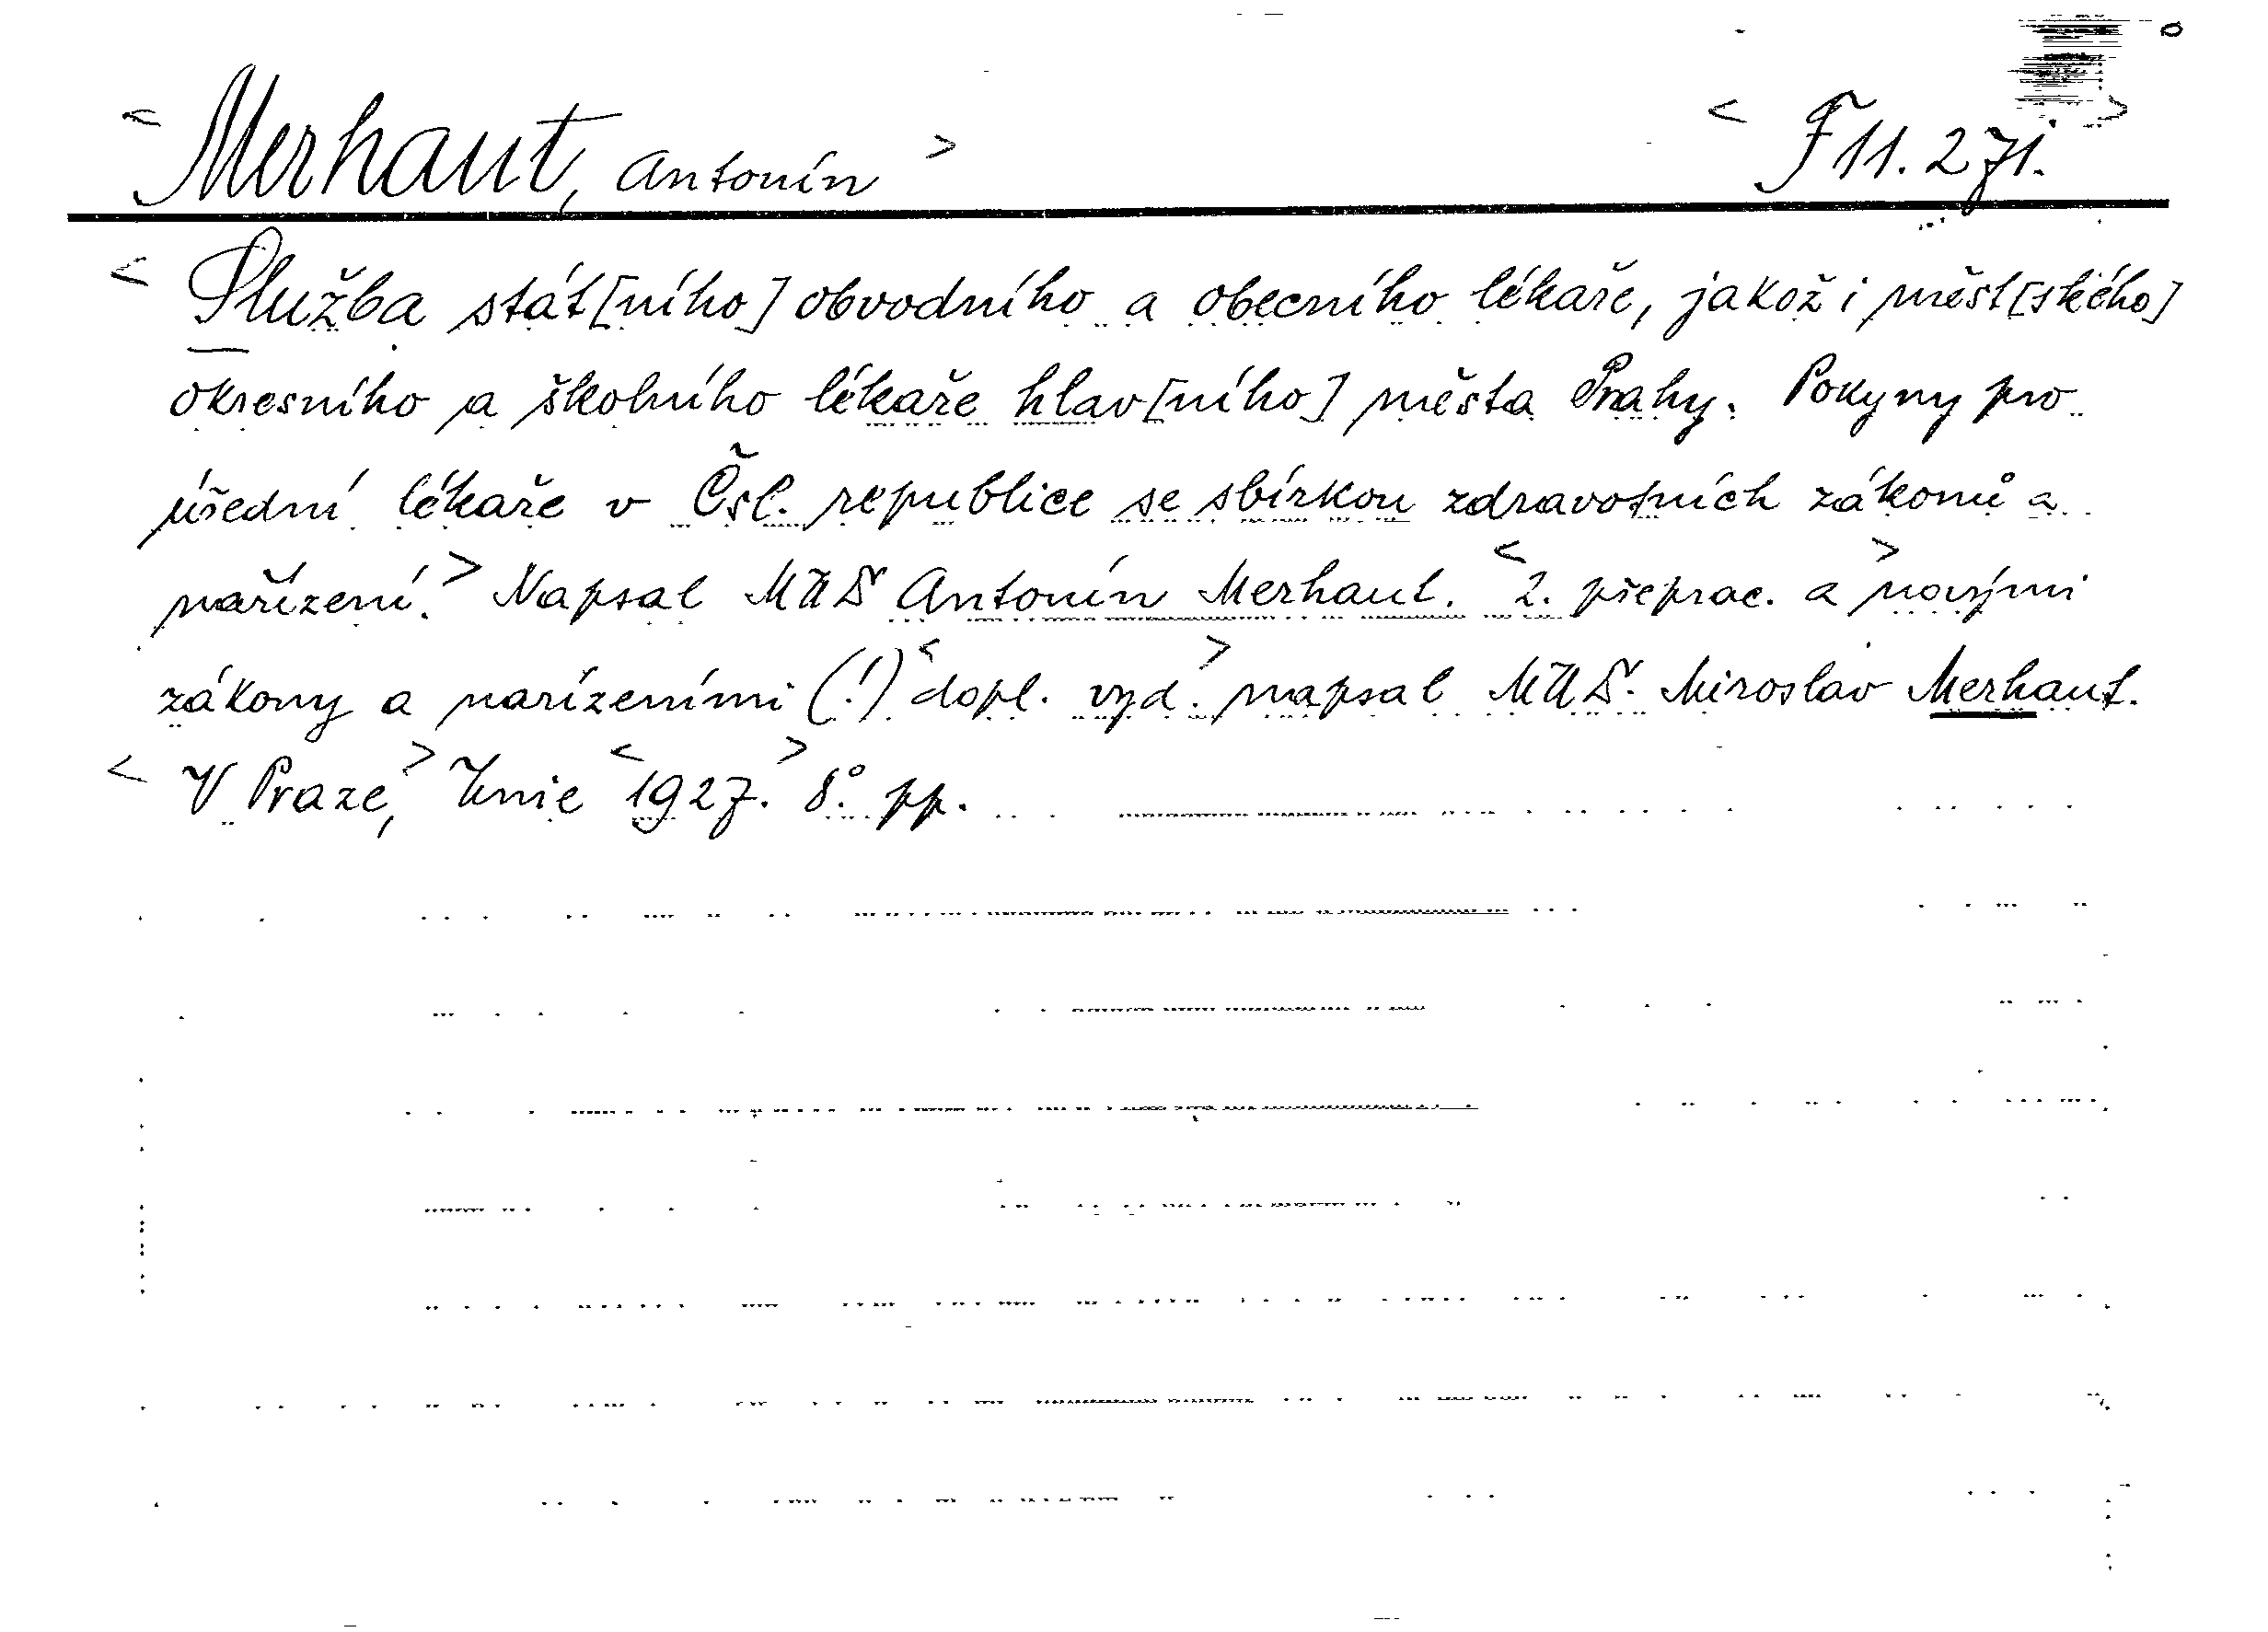 < Merhaut, Antonín > < F 11.271. >
< Služba stát[ního] obvodního a obecního lékaře, jakož i měst[ského]
okresního a školního lékaře hlav[ního] města Prahy. Pokyny pro
úřední lékaře v Čsl. republice se sbírkou zdravotních zákonů a
nařízení. > Napsal MUDr Antonín Merhaut. < 2. přeprac. a > novými
zákony a narízeními (!) < dopl. vyd. > napsal MUDr. Miroslav Merhaut.
< V Praze, > Unie < 1927. > 8°. pp.